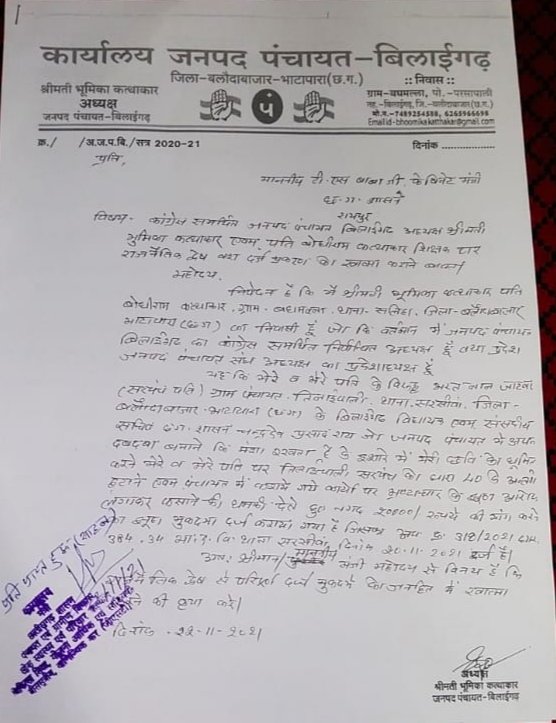 कार्यालय जनपद पंचायत-बिलाईगढ़
जिला-बलौदाबाजार-भाटापारा(छ.ग.)
श्रीमती भूमिका कत्थाकार
अध्यक्ष
जनपद पंचायत-बिलाईगढ़
पं
:: निवास ::
ग्राम-बघमल्ला, पो.-परसापाली
तह.-बिलाईगढ़, जि.-बलौदाबाजार(छ.ग.)
मो.नं.-7489254588, 6265966698
Email id-bhoomikakatthakar@gmail.com
क्र./ /अ.ज.प.बि./सत्र 2020-21
दिनांक ....................
प्रति,
माननीय टी.एस बाबा जी केबिनेट मंत्री
छ.ग. शासन
रायपुर
विषय- कांग्रेस समर्थित जनपद पंचायत बिलाईगढ़ अध्यक्ष श्रीमती
भूमिका कत्थाकार एवम् पति बोधीराम कत्थाकार शिक्षक पर
राजनैतिक द्वेष वश दर्ज प्रकरण का खात्मा कराने बाबत्।
महोदय,
निवेदन है कि मैं श्रीमती भूमिका कत्थाकार पति
बोधीराम कत्थाकार, ग्राम- थाना- जिला-बलौदाबाजार
भाटापारा (छ.ग) का निवासी हूँ जो कि वर्तमान में जनपद पंचायत
बिलाईगढ़ का कांग्रेस समर्थित निर्वाचित अध्यक्ष हूँ तथा प्रदेश
जनपद पंचायत संघ अध्यक्ष का प्रदेशाध्यक्ष हूँ
यह कि मेरे व मेरे पति के विरुद्ध भरत लाल
(सरपंच पति) ग्राम पंचायत- थाना-सरसीवां, जिला-
बलौदाबाजार-भाटापारा (छ.ग) के बिलाईगढ़ विधायक एवम् संसदीय
सचिव छ.ग. शासन चन्द्रदेव प्रसाद राय जो जनपद पंचायत में अपना
दबदबा बनाने कि मंशा रखता है के इशारे में मेरी छवि को धूमिल
करने मेरे व मेरे पति पर सरपंच का धारा 40 के
हटाने एवम पंचायत में कराये गये कार्यो पर भ्रष्टाचार के झूठा आरोप
लगाकर फंसाने की धमकी देते हुए नगद रुपये की मांग करने
का झूठा मुकदमा दर्ज कराया गया है जिसका अप. क्र. 318/2021 धारा
384, 34 भा.द.वि. थाना सरसीवां, दिनांक 20-11-2021 दर्ज है।
अतः श्रीमान माननीय मंत्री महोदय से विनय है कि
द्वेष से दर्ज मुकदमे का जनहित में खात्मा
की कृपा करें।
दिनांक. 22-11-2021
अध्यक्ष
श्रीमती भूमिका कत्थाकार
जनपद पंचायत-बिलाईगढ़